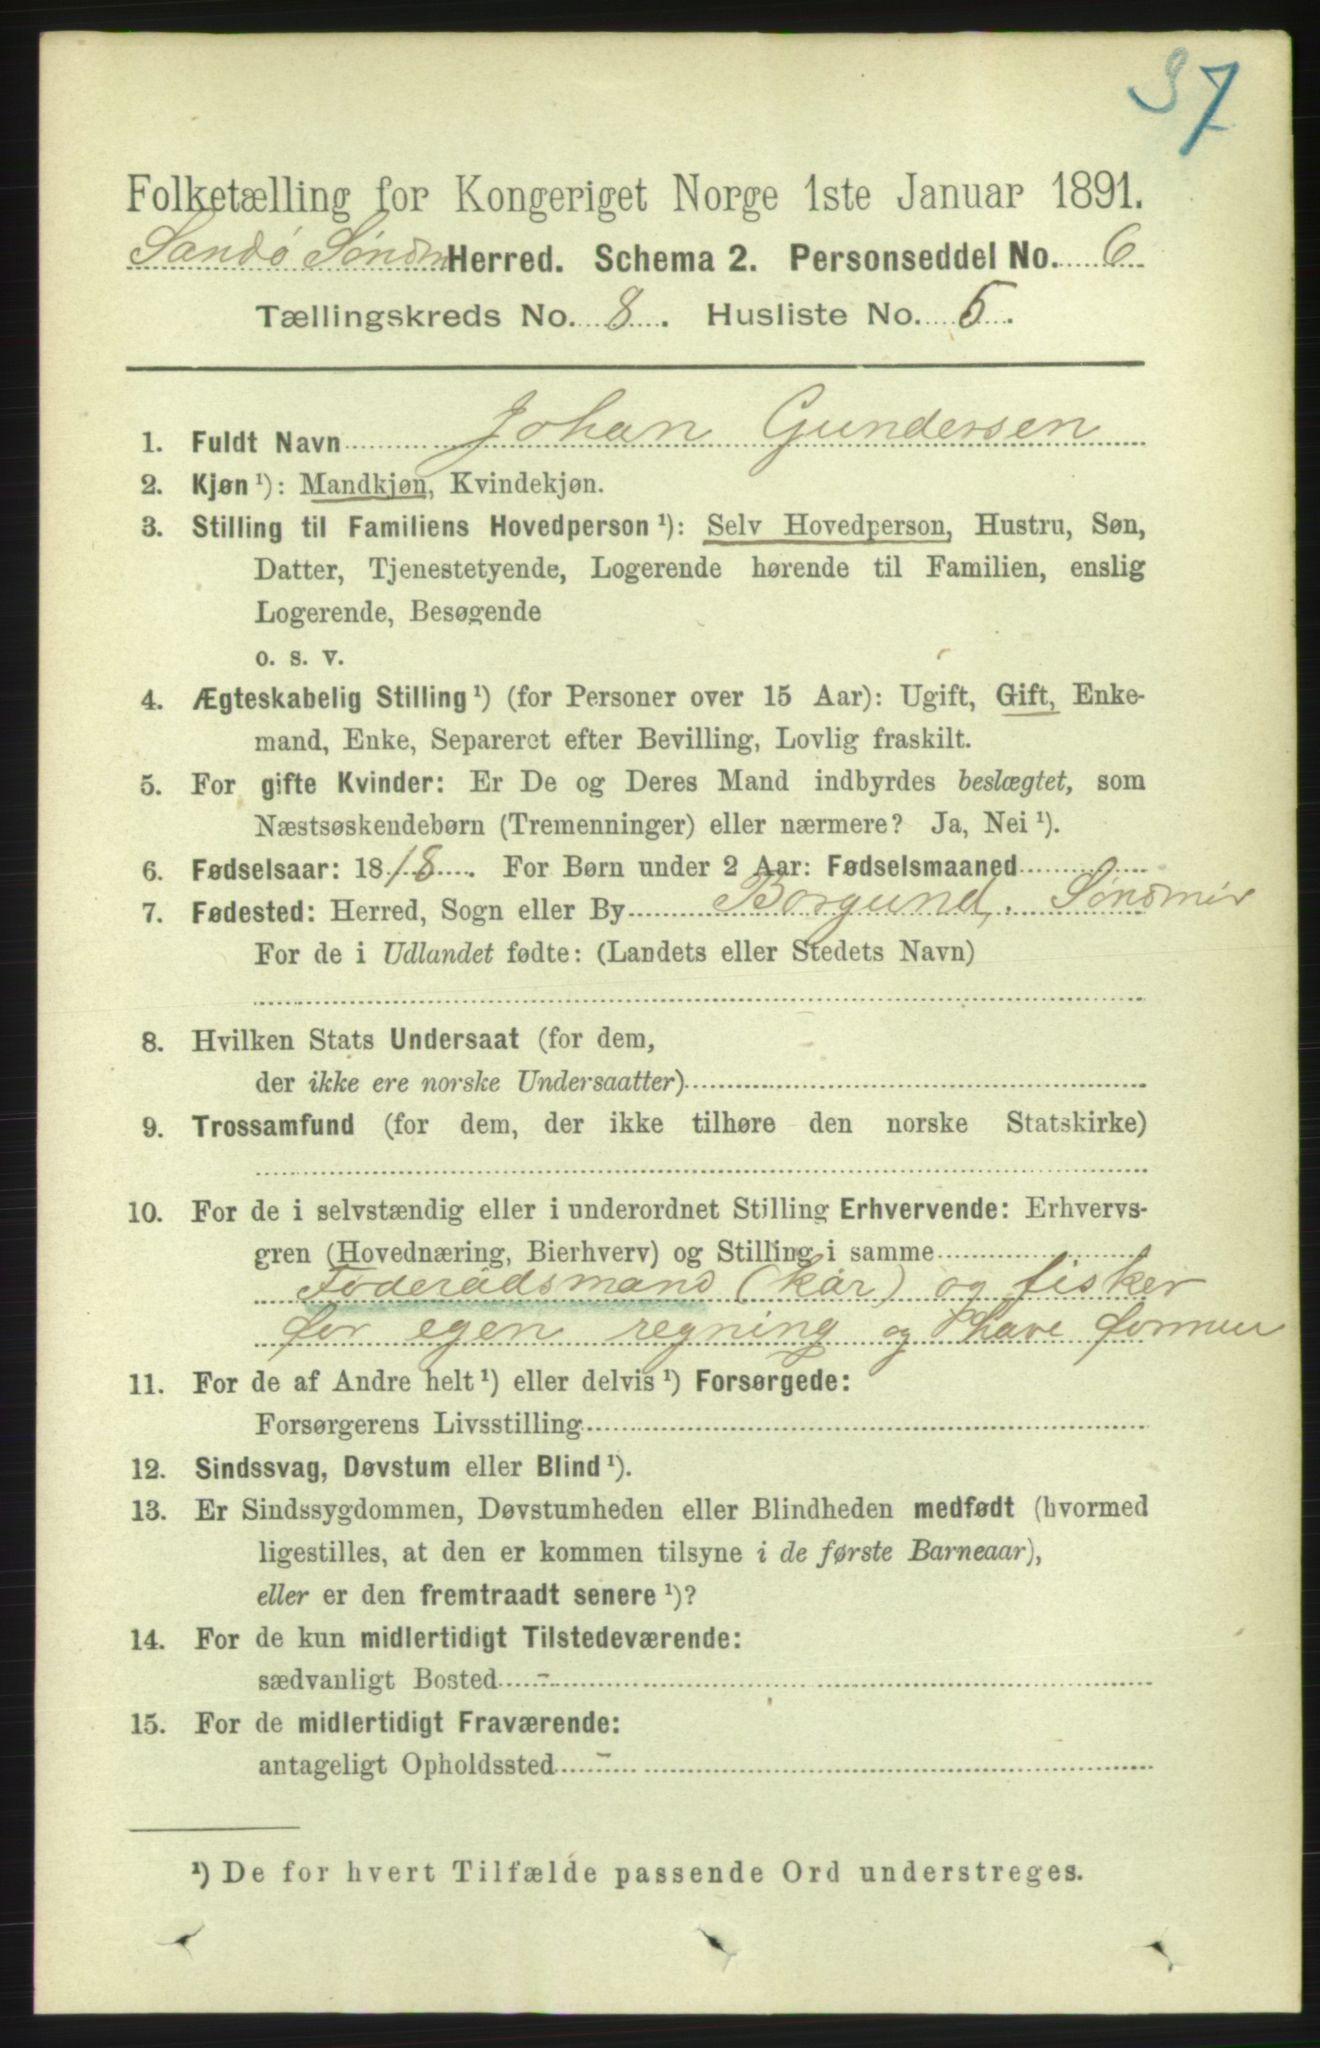 37
Folketælling for Kongeriget Norge 1ste Januar 1891.
Sandø Søndm Herred. Schema 2. Personseddel No. 6
Tællingskreds No. 8. Husliste No. 5.
1. Fuldt Navn Johan Gundersen
2. Kjøn ¹): Mandkjøn, Kvindekjøn.
3. Stilling til Familiens Hovedperson ¹): Selv Hovedperson, Hustru, Søn,
Datter, Tjenestetyende, Logerende hørende til Familien, enslig
Logerende, Besøgende
o. s. v.
4. Ægteskabelig Stilling ¹) (for Personer over 15 Aar): Ugift, Gift, Enke-
mand, Enke, Separeret efter Bevilling, Lovlig fraskilt.
5. For gifte Kvinder: Er De og Deres Mand indbyrdes beslægtet, som
Næstsøskendebørn (Tremenninger) eller nærmere? Ja, Nei ¹).
6. Fødselsaar: 1818. For Børn under 2 Aar: Fødselsmaaned
7. Fødested: Herred, Sogn eller By Borgund, Søndmør
For de i Udlandet fødte: (Landets eller Stedets Navn)
8. Hvilken Stats Undersaat (for dem,
der ikke ere norske Undersaatter)
9. Trossamfund (for dem, der ikke tilhøre den norske Statskirke)
10. For de i selvstændig eller i underordnet Stilling Erhvervende: Erhvervs-
gren (Hovednæring, Bierhverv) og Stilling i samme
Føderådsmand (kår) og fisker
for egen regning og have formue
11. For de af Andre helt ¹) eller delvis ¹) Forsørgede:
Forsørgerens Livsstilling
12. Sindssvag, Døvstum eller Blind ¹).
13. Er Sindssygdommen, Døvstumheden eller Blindheden medfødt (hvormed
ligestilles, at den er kommen tilsyne i de første Barneaar),
eller er den fremtraadt senere ¹)?
14. For de kun midlertidigt Tilstedeværende:
sædvanligt Bosted -
15. For de midlertidigt Fraværende:
antageligt Opholdssted -
¹) De for hvert Tilfælde passende Ord understreges.